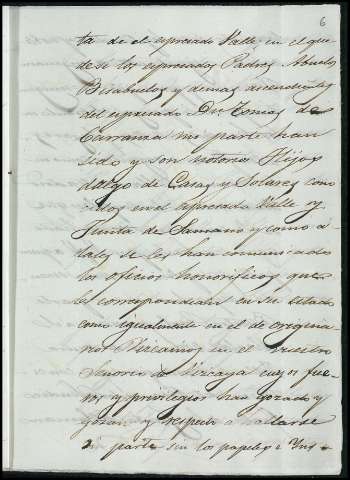 6
ta de el espresado Valle, en el que
desde los espresados Padres, Abuelos
Bisabuelos y demas ascendientes
del espresado Dn Tomas de
Carranza mi parte han
sido y son notorios Hijos
dalgo de Casas y Solares cono
cidos en el espresado Valle y
Junta de Samano y como a
tales se les han comunicado
los oficios honorificos que
les correspondian en su estado
como igualmente en el de origina
rios Vizcainos en el vuestro
Señorio de Vizcaya cuyos fue
ros y privilegios han gozado y
gozan y respecto a hallarse
mi parte sin los papeles e Yns